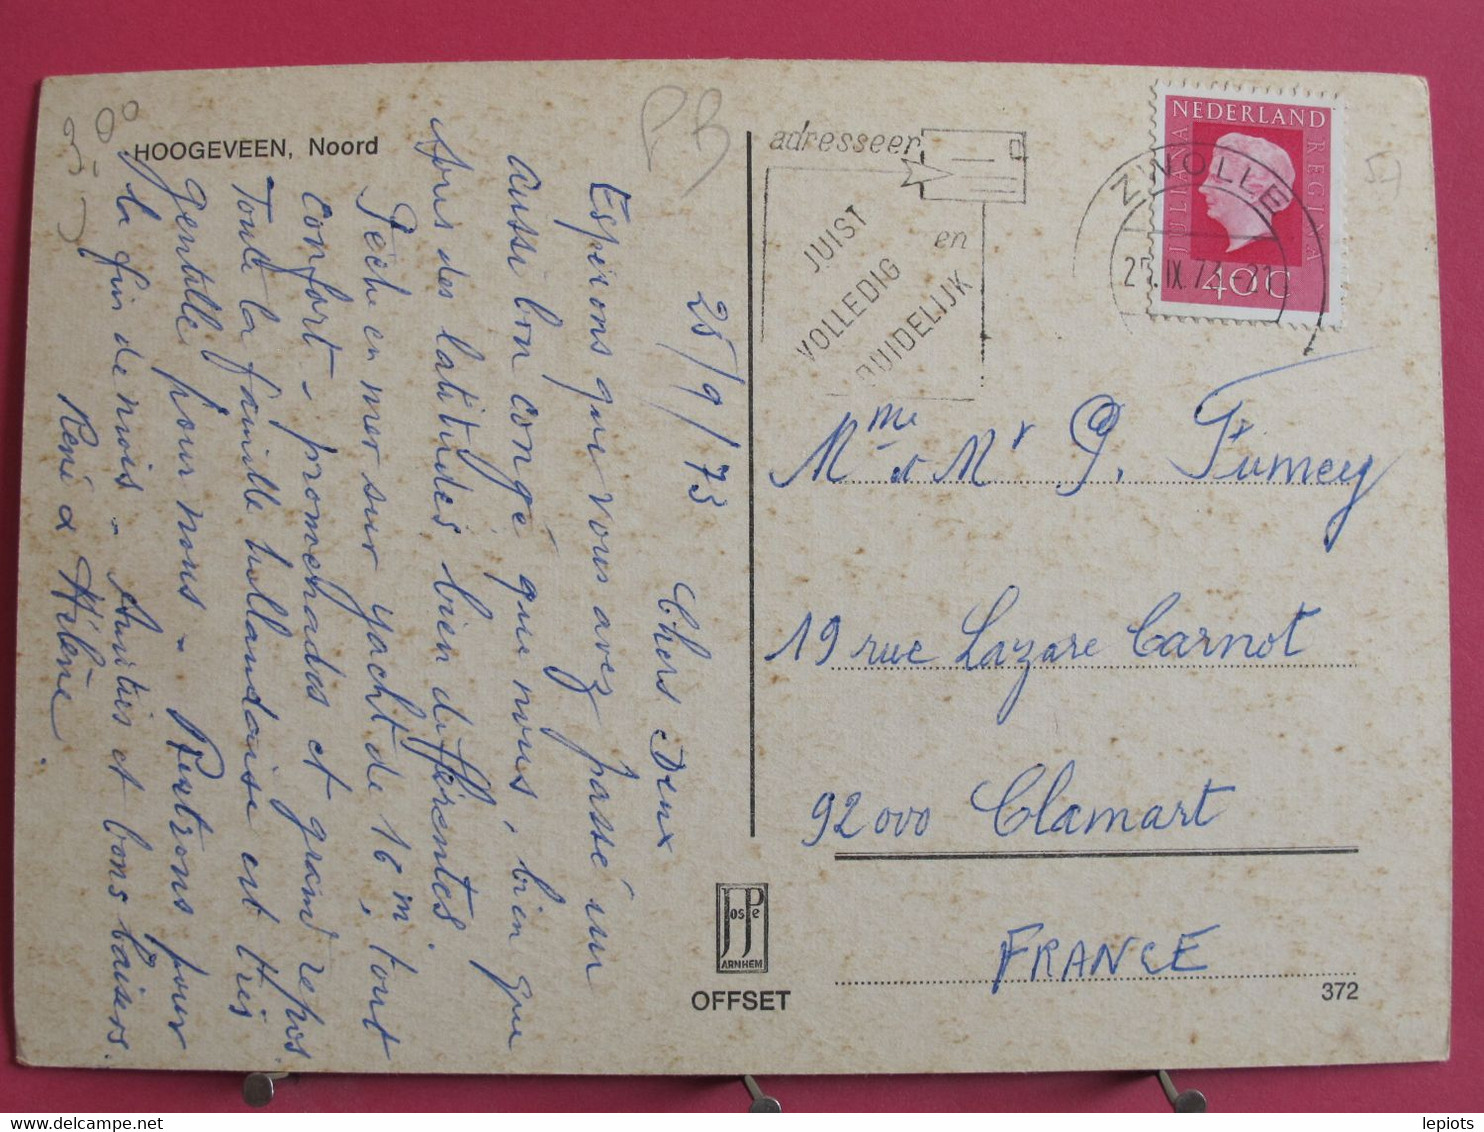 3.00
HOOGEVEEN, Noord
PB
25/9/73
Chers Deux
Espérons que vous avez passé un
aussi bon congé que nous, bien que
sous des latitudes bien différentes.
Pêche en mer sur yacht de 16m, tout
confort - promenades et grand repos.
Toute la famille hollandaise est très
gentille pour nous - Rentrons pour
la fin de mois - Amitiés et bons baisers.
René & Hélène.
adresseer
JUIST
VOLLEDIG
en
DUIDELIJK
ZWOLLE
IX.73-21
NEDERLAND
JULIANA REGINA
40C
Mme et Mr G. Fumey
19 rue Lazare Carnot
92000 Clamart
FRANCE
JosPe
ARNHEM
OFFSET
372
delcampe.net
lepiots